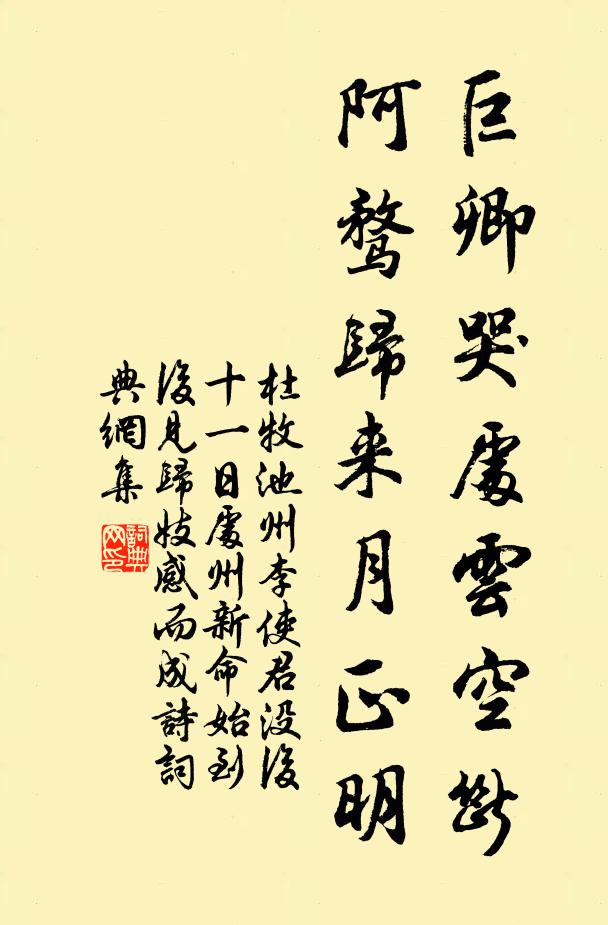 巨卿哭處雲空斷
阿鶩歸来月正明
杜牧池州李使君没後
十一日處州新命始到
後見歸妓感而成詩詞
典網集
詞典
网印